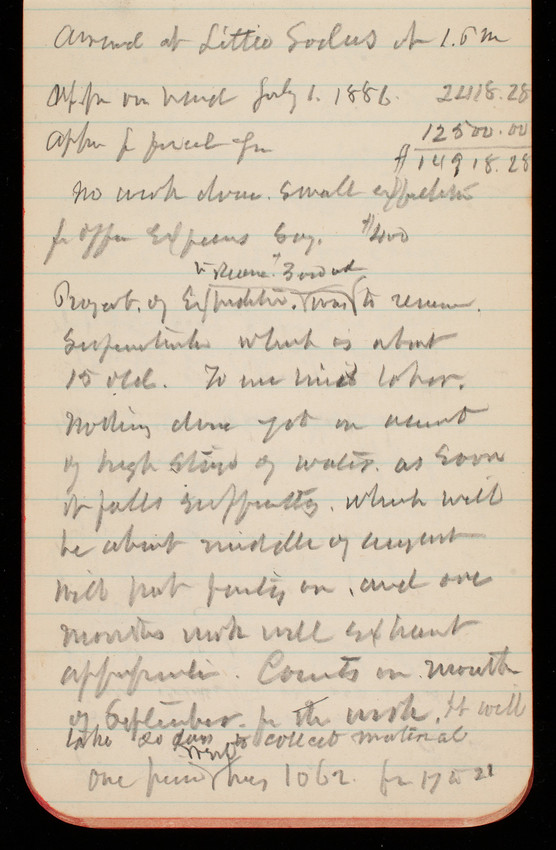 Arrived at Little Sodus at 1.5 m
on hand July 1. 1886. 2418.28
Appn 12500.00
$14918.28
No work done. Small expenditure
for office expenses say. $400
to Reserve. $300
Project. of Expenditure. was to renew.
Superstructure which is about
15 old. To use hired labor.
Nothing done yet on account
of high stage of water. as soon
it falls sufficiently. which will
be about middle of August
will put party on. and one
months work will exhaust
appropriation. Counts on month
of September. for the work. It will
take 20 days to collect material
one pier 1062. for 17 to 21